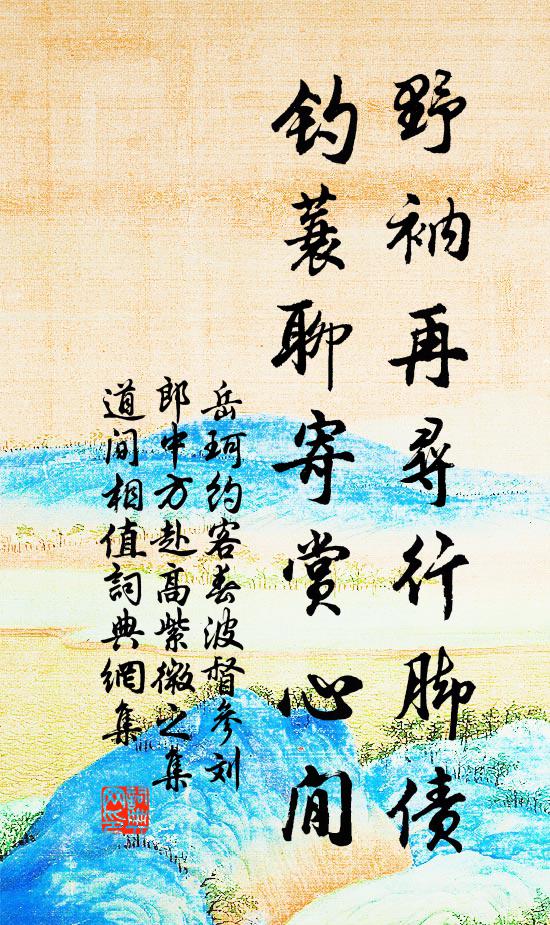 野衲再尋行脚债
钓蓑聊寄賞心閒
岳珂约客春波督参刘
郎中方赴高紫微之集
道间相值詞典網集